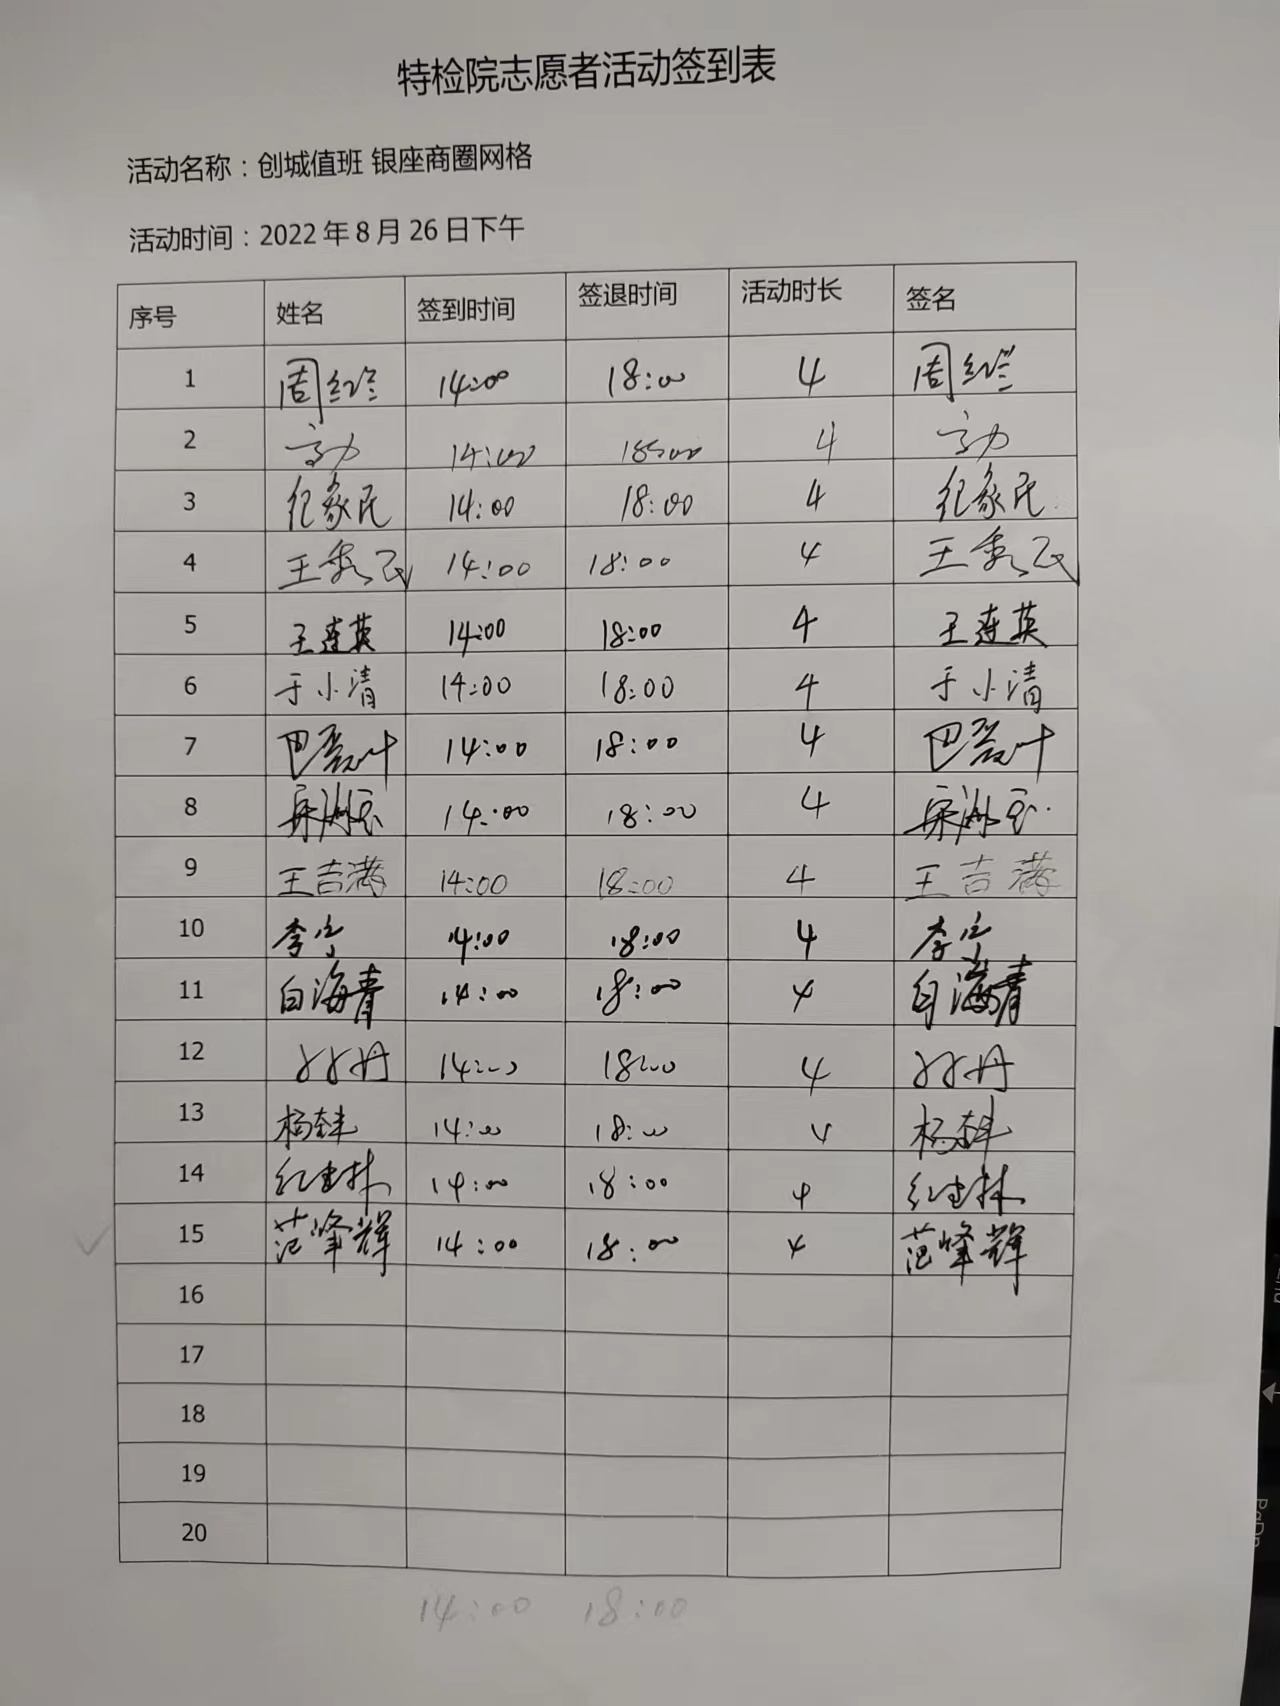 特检院志愿者活动签到表
活动名称：创城值班 银座商圈网格
活动时间：2022年8月26日下午
序号 姓名 签到时间 签退时间 活动时长 签名
1 14:00 18:00 4
2 14:00 18:00 4
3 纪象民 14:00 18:00 4 纪象民
4 王秀民 14:00 18:00 4 王秀民
5 王连英 14:00 18:00 4 王连英
6 于小清 14:00 18:00 4 于小清
7 14:00 18:00 4
8 14:00 18:00 4
9 王吉满 14:00 18:00 4 王吉满
10 李宁 14:00 18:00 4 李宁
11 白海青 14:00 18:00 4 白海青
12 14:00 18:00 4
13 14:00 18:00 4
14 14:00 18:00 4
15 范峰辉 14:00 18:00 4 范峰辉
16
17
18
19
20
14:00 18:00